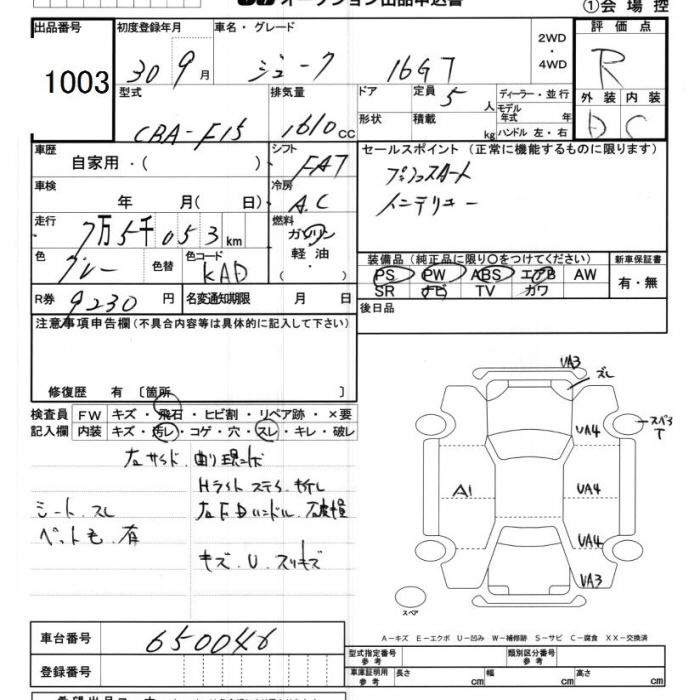 オークション出品申込書
①会場控
出品番号
1003
初度登録年月
30 9月
車名・グレード
ジューク 16GT
2WD
・
4WD
評価点
R
外装 内装
D C
型式
CBA-F15
排気量
1610 cc
ドア
形状
定員
5 人
積載
kg
ディーラー・並行
モデル年式 年
ハンドル 左・右
車歴
自家用・( )
シフト
FAT
セールスポイント(正常に機能するものに限ります)
プッシュスタート
インテリキー
車検
年 月( 日)
冷房
A.C
走行
7万5千053km
燃料
ガソリン
軽油
・
色
グレー
色替
色コード
KAD
R券 9230円
名変通知期限 月 日
装備品(純正品に限り○をつけてください)
PS PW ABS エアB AW
SR ナビ TV カワ
新車保証書
有・無
後日品
注意事項申告欄(不具合内容等は具体的に記入して下さい)
修復歴 有〔箇所 〕
検査員記入欄
FW キズ・飛石・ヒビ割・リペア跡・×要
内装 キズ・汚レ・コゲ・穴・スレ・キレ・破レ
左サイド
Hライト ステイ 折レ
シート スレ
ペット毛 有
キズ U スリキズ
UA3
ズレ
UA4
A1
UA4
UA4
UA3
スペア
A-キズ E-エクボ U-凹み W-補修跡 S-サビ C-腐食 XX-交換済
車台番号 650046
登録番号
型式指定番号 参考
類別区分番号 参考
車庫証明用 参考 長さ cm 幅 cm 高さ cm